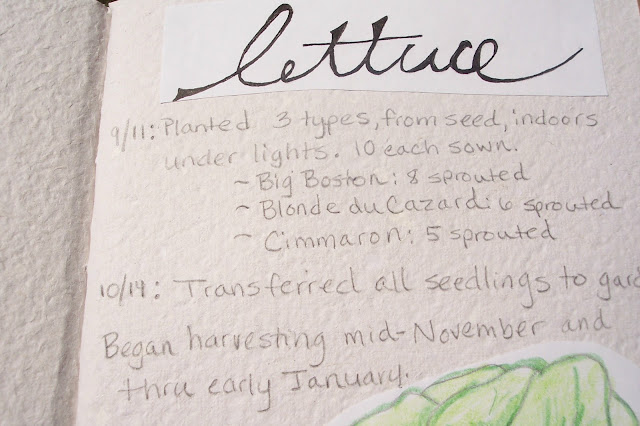 lettuce
9/11: Planted 3 types, from seed, indoors
under lights. 10 each sown.
~ Big Boston: 8 sprouted
~ Blonde du Cazard: 6 sprouted
~ Cimmaron: 5 sprouted
10/14: Transferred all seedlings to gard
Began harvesting mid-November and
thru early January.